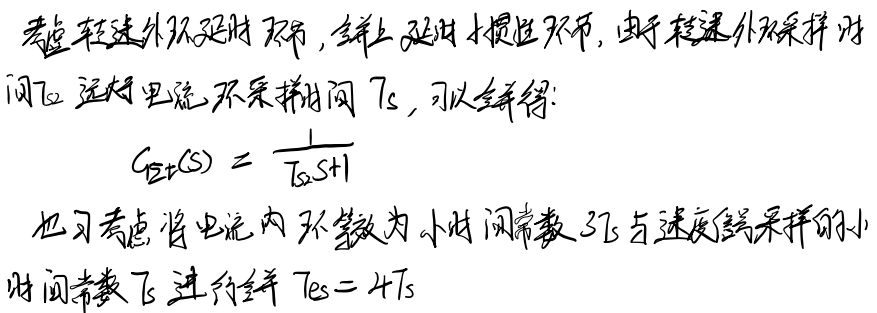 考虑转速外环延时环节,合并上延时小惯性环节,由于转速外环采样时
间Ts2远大于电流环采样时间Ts,可以合并得:
G(s) = 1/(Ts2S+1)
也可考虑将电流内环等效为小时间常数3Ts与速度信号采样的小
时间常数Ts进行合并 Tes=4Ts